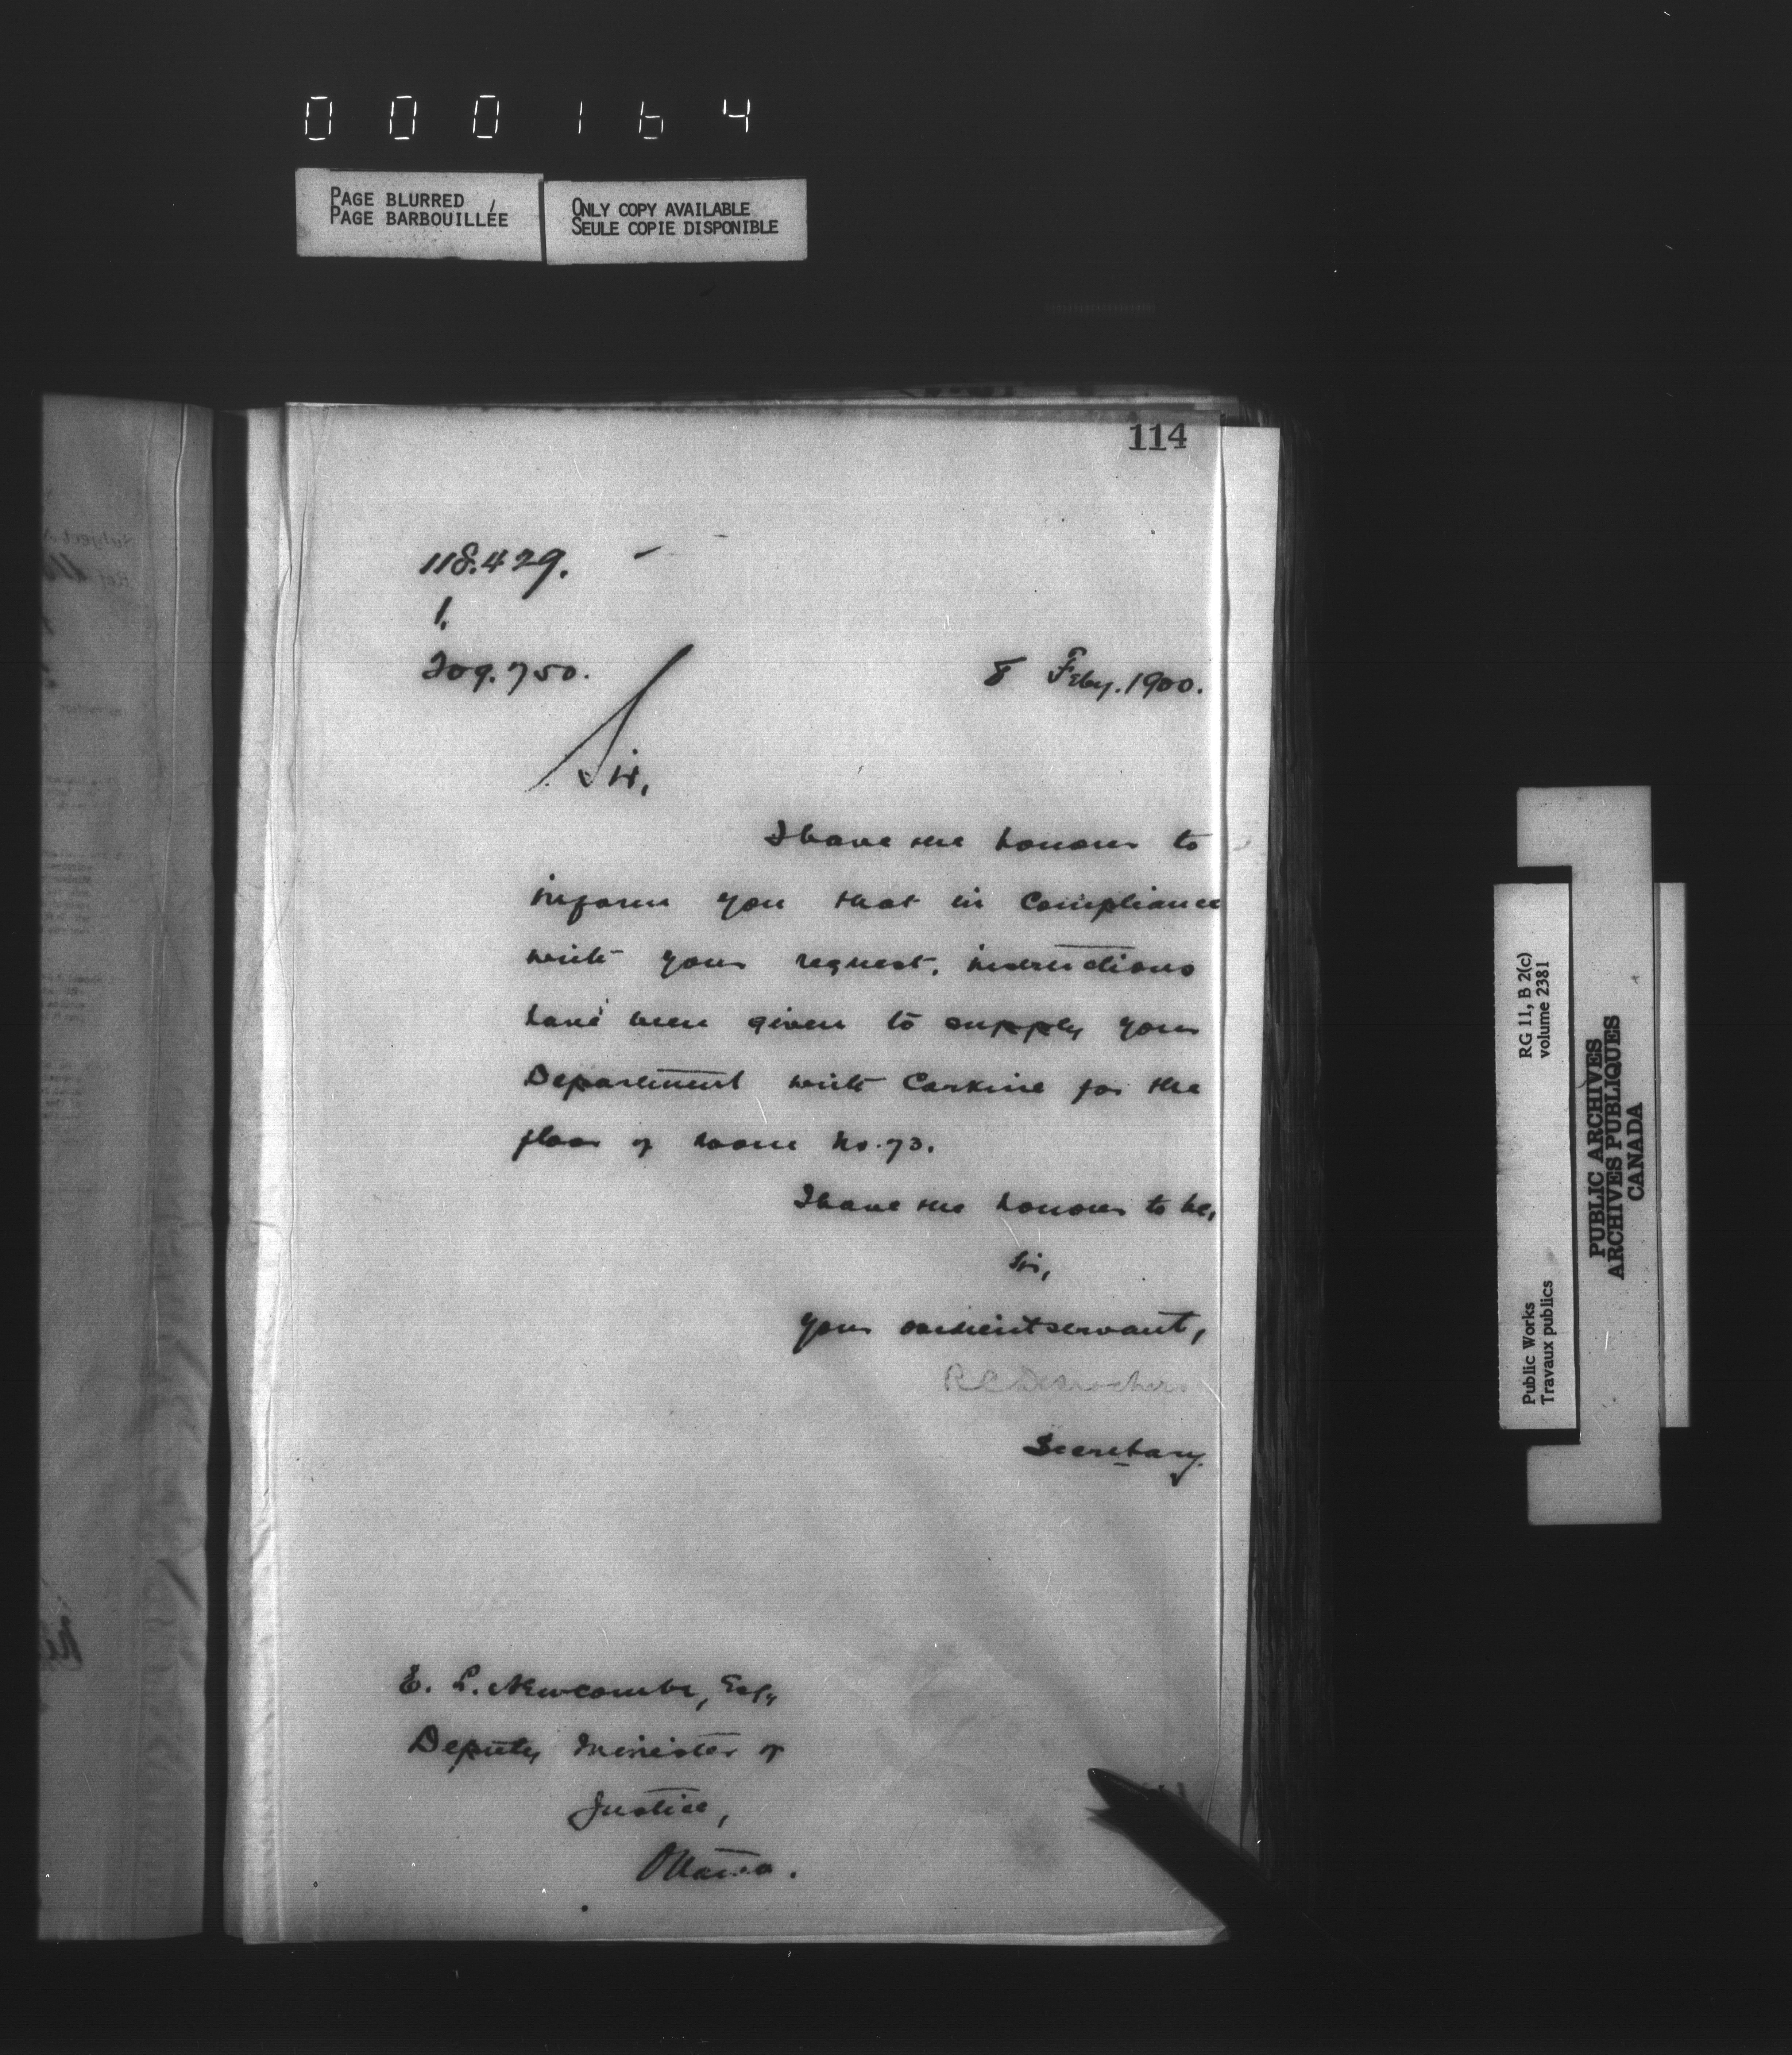 000164
PAGE BLURRED
PAGE BARBOUILLÉE
ONLY COPY AVAILABLE
SEULE COPIE DISPONIBLE
114
118.429.
1.
209.750.
8 Feby. 1900.
Sir,
I have the honour to
inform you that in compliance
with your request, instructions
have been given to supply your
Department with Corkine for the
floor of room No. 73.
I have the honour to be,
Sir,
your obedient servant,
R C Desrochers
Secretary.
E. L. Newcombe, Esq,
Deputy Minister of
Justice,
Ottawa.
RG 11, B 2(c)
volume 2381
Public Works
Travaux publics
PUBLIC ARCHIVES
ARCHIVES PUBLIQUES
CANADA